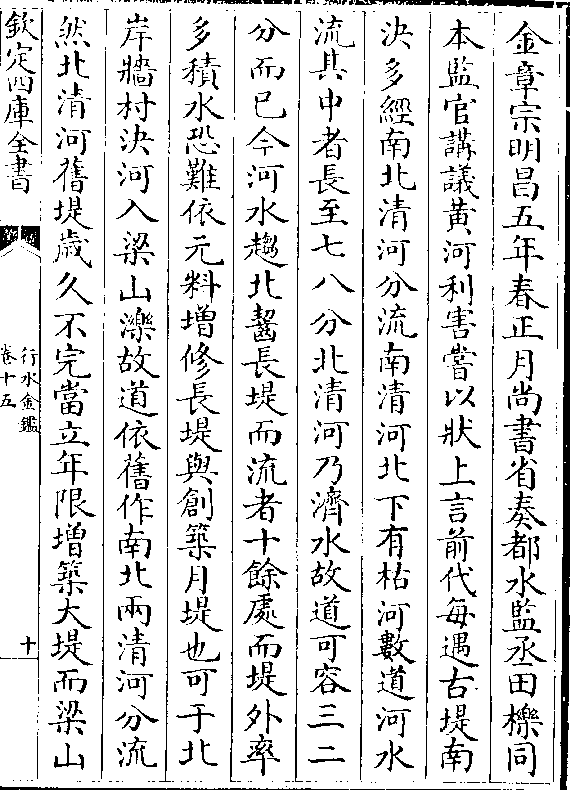 金章宗明昌五年春正月尚書省奏都水監丞田櫟同
本監官講議黄河利害嘗以狀上言前代每遇古堤南
決多經南北清河分流南清河北下有枯河數道河水
流其中者長至七八分北清河乃濟水故道可容三二
分而已今河水趨北齧長堤而流者十餘處而堤外率
多積水恐難依元料增修長堤與創築月堤也可于北
岸牆村決河入梁山濼故道依舊作南北兩清河分流
然北清河舊堤歲久不完當立年限增築大堤而梁山
欽定四庫全書
行水金鑑
卷十五
十